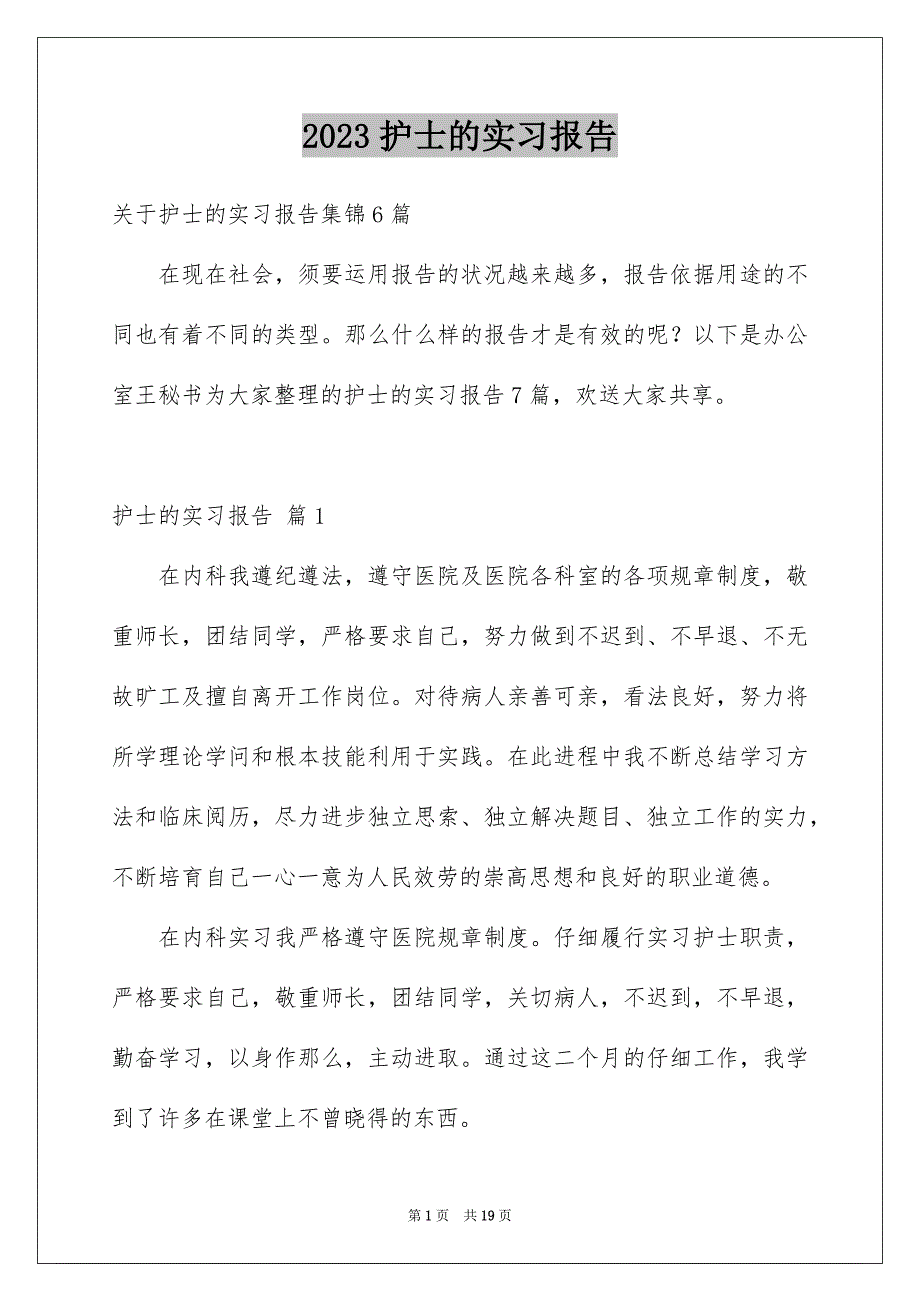 2023护士的实习报告
关于护士的实习报告集锦6篇
在现在社会，须要运用报告的状况越来越多，报告依据用途的不
同也有着不同的类型。那么什么样的报告才是有效的呢？以下是办公
室王秘书为大家整理的护士的实习报告7篇，欢送大家共享。
护士的实习报告 篇1
在内科我遵纪遵法，遵守医院及医院各科室的各项规章制度，敬
重师长，团结同学，严格要求自己，努力做到不迟到、不早退、不无
故旷工及擅自离开工作岗位。对待病人亲善可亲，看法良好，努力将
所学理论学问和根本技能利用于实践。在此进程中我不断总结学习方
法和临床阅历，尽力进步独立思索、独立解决题目、独立工作的实力，
不断培育自己一心一意为人民效劳的崇高思想和良好的职业道德。
在内科实习我严格遵守医院规章制度。仔细履行实习护士职责，
严格要求自己，敬重师长，团结同学，关切病人，不迟到，不早退，
勤奋学习，以身作那么，主动进取。通过这二个月的仔细工作，我学
到了许多在课堂上不曾晓得的东西。
第1页 共19页